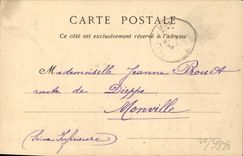 CARTE POSTALE
Ce côté est exclusivement réservé à l'adresse
Mademoiselle Jeanne
route de Dieppe
Monville
Seine Inférieure